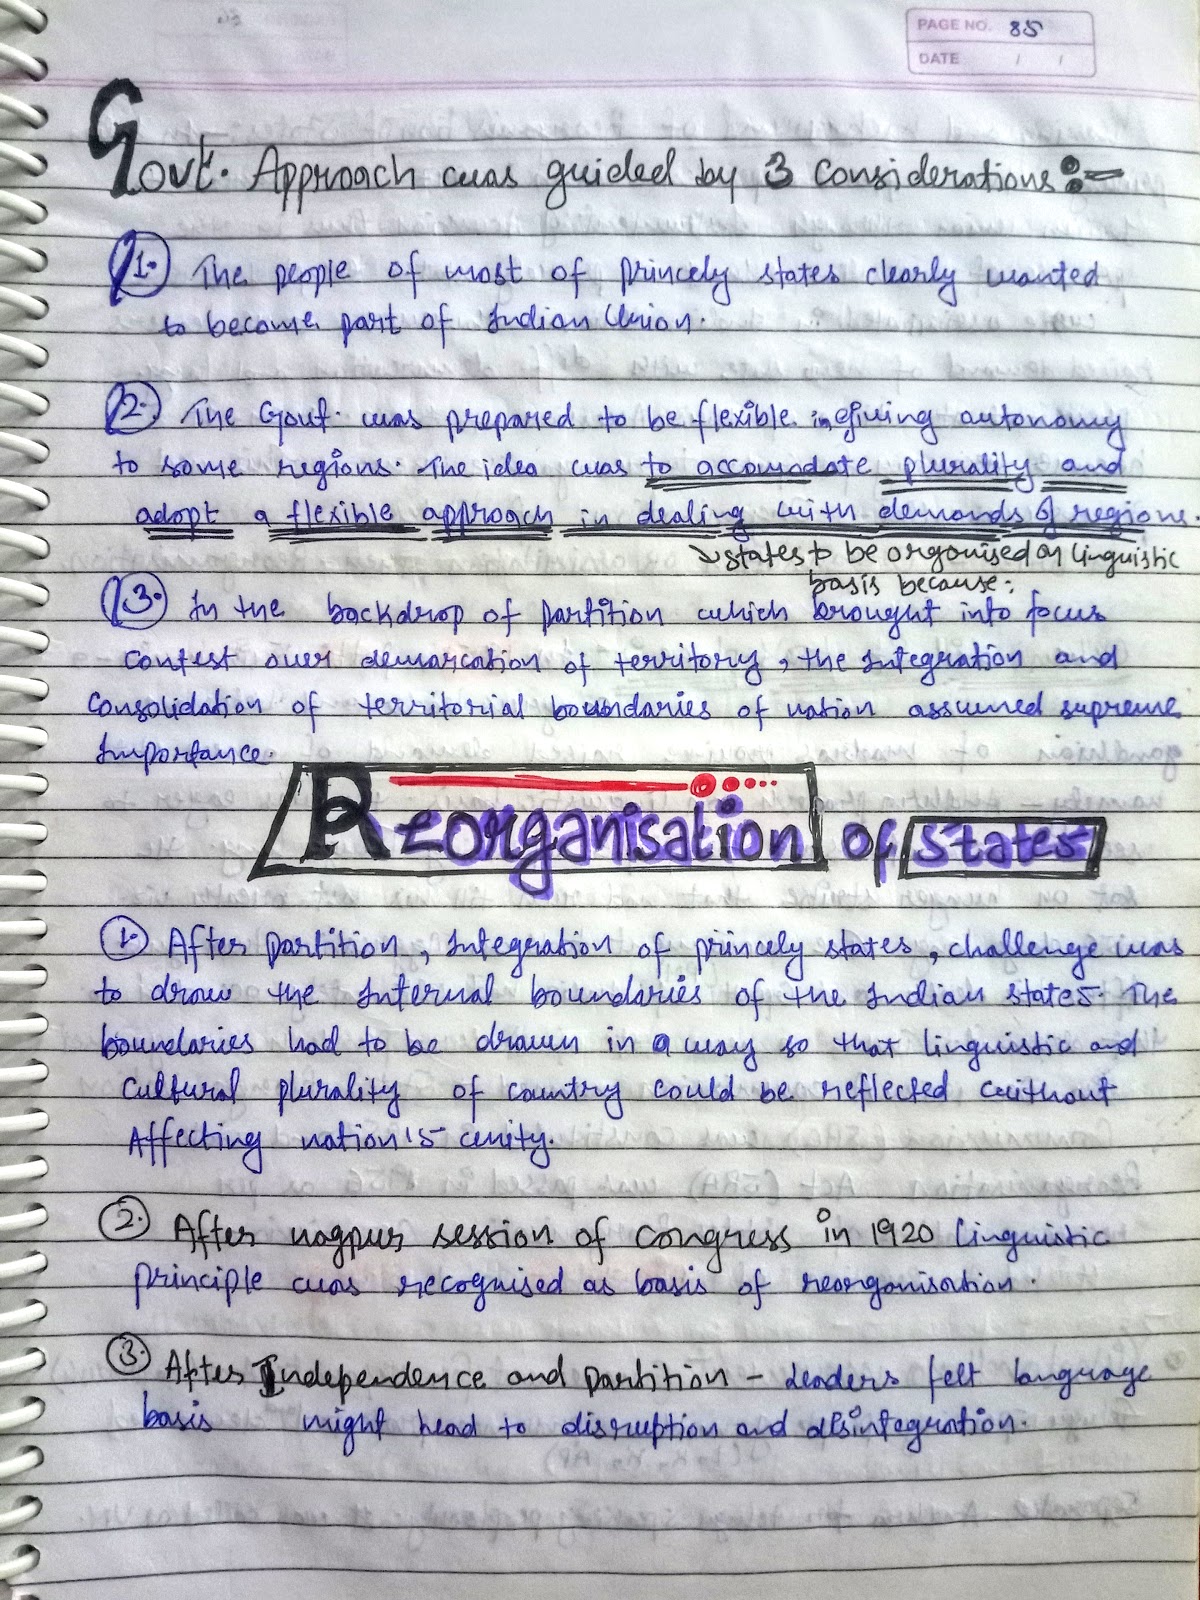 PAGE NO. 85
DATE / /
Govt. Approach was guided by 3 Considerations :-
1. The people of most of princely states clearly wanted
to become part of Indian Union.
2. The Govt. was prepared to be flexible in giving autonomy
to some regions. The idea was to accomodate plurality and
adopt a flexible approach in dealing with demands of regions.
states to be organised on linguistic
basis because:
3. In the backdrop of partition which brought into focus
Contest over demarcation of territory, the Integration and
Consolidation of territorial boundaries of nation assumed supreme
Importance.
Reorganisation of States
1. After partition, Integration of princely states, challenge was
to draw the Internal boundaries of the Indian states. The
boundaries had to be drawn in a way so that linguistic and
Cultural plurality of country could be reflected without
Affecting nation's unity.
2. After nagpur session of congress in 1920 linguistic
principle was recognised as basis of reorganisation.
3. After Independence and partition - Leaders felt language
basis might lead to disruption and disintegration.